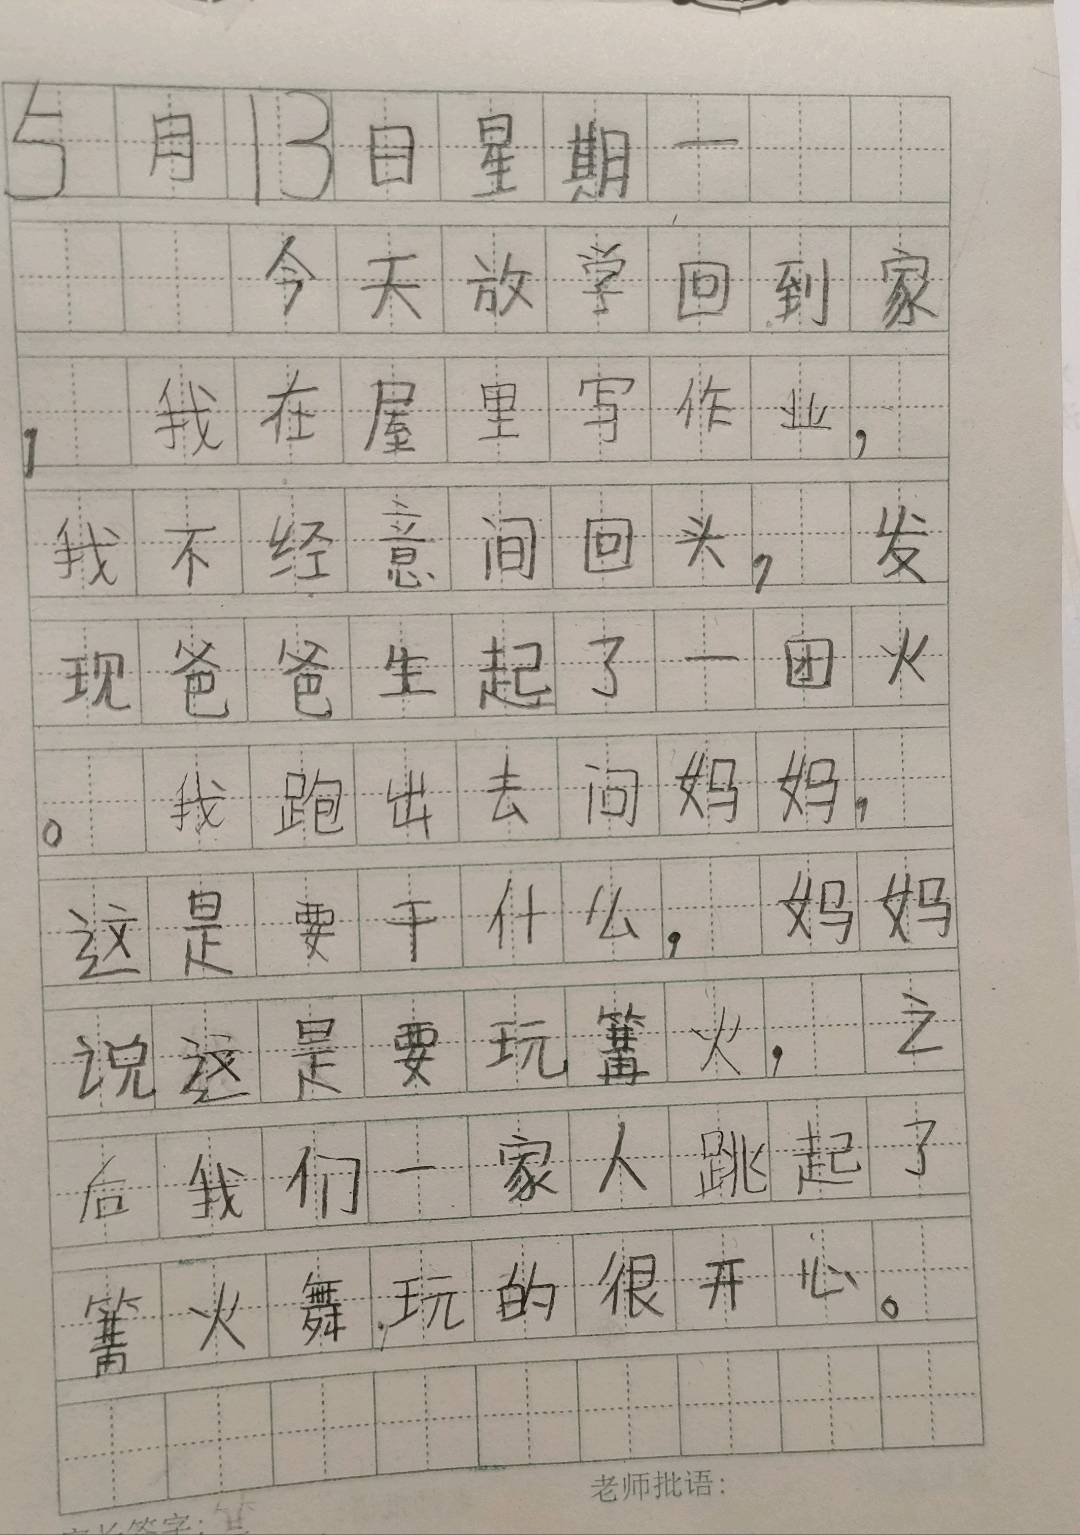 5月13日星期一
今天放学回到家
，我在屋里写作业，
我不经意间回头，发
现爸爸生起了一团火
。我跑出去问妈妈，
这是要干什么，妈妈
说这是要玩篝火，之
后我们一家人跳起了
篝火舞，玩的很开心。
老师批语：
家长签字：